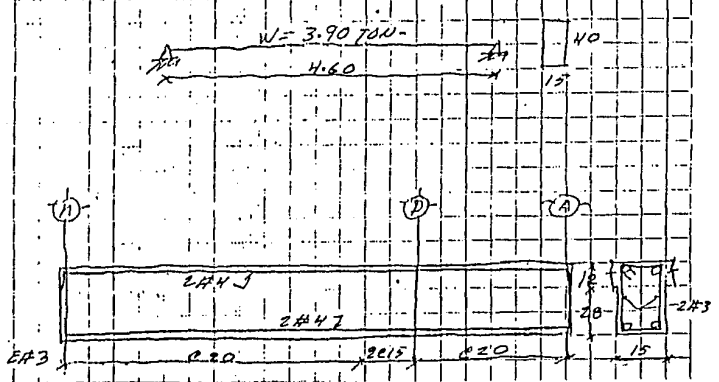 W= 3.90 TON-
4.60
40
15
D
A
2#4J
2#4J
28
2#3
E#3
@20
2@15
@20
15